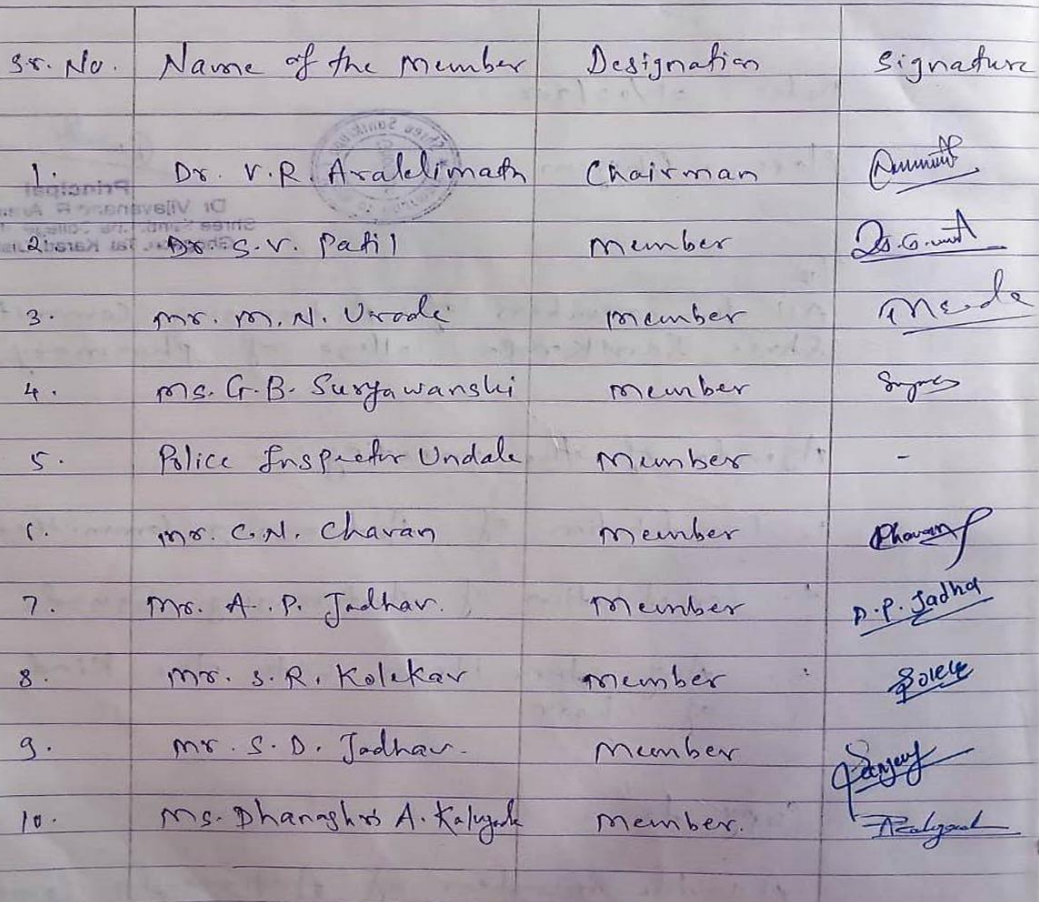 Sr. No. Name of the Member Designation Signature
1. Dr. V.R. Aralelimath Chairman
2. Dr. S.V. Patil Member
3. Mr. M.N. Urade Member
4. Ms. G.B. Suryawanshi Member
5. Police Inspector Undale Member -
6. Mr. C.N. Chavan Member Chavan
7. Mr. A.P. Jadhav. Member A.P. Jadhav
8. Mr. S.R. Kolekar Member
9. Mr. S.D. Jadhav. Member Sanjay
10. Ms. Dhanashri A. Kalugade Member.